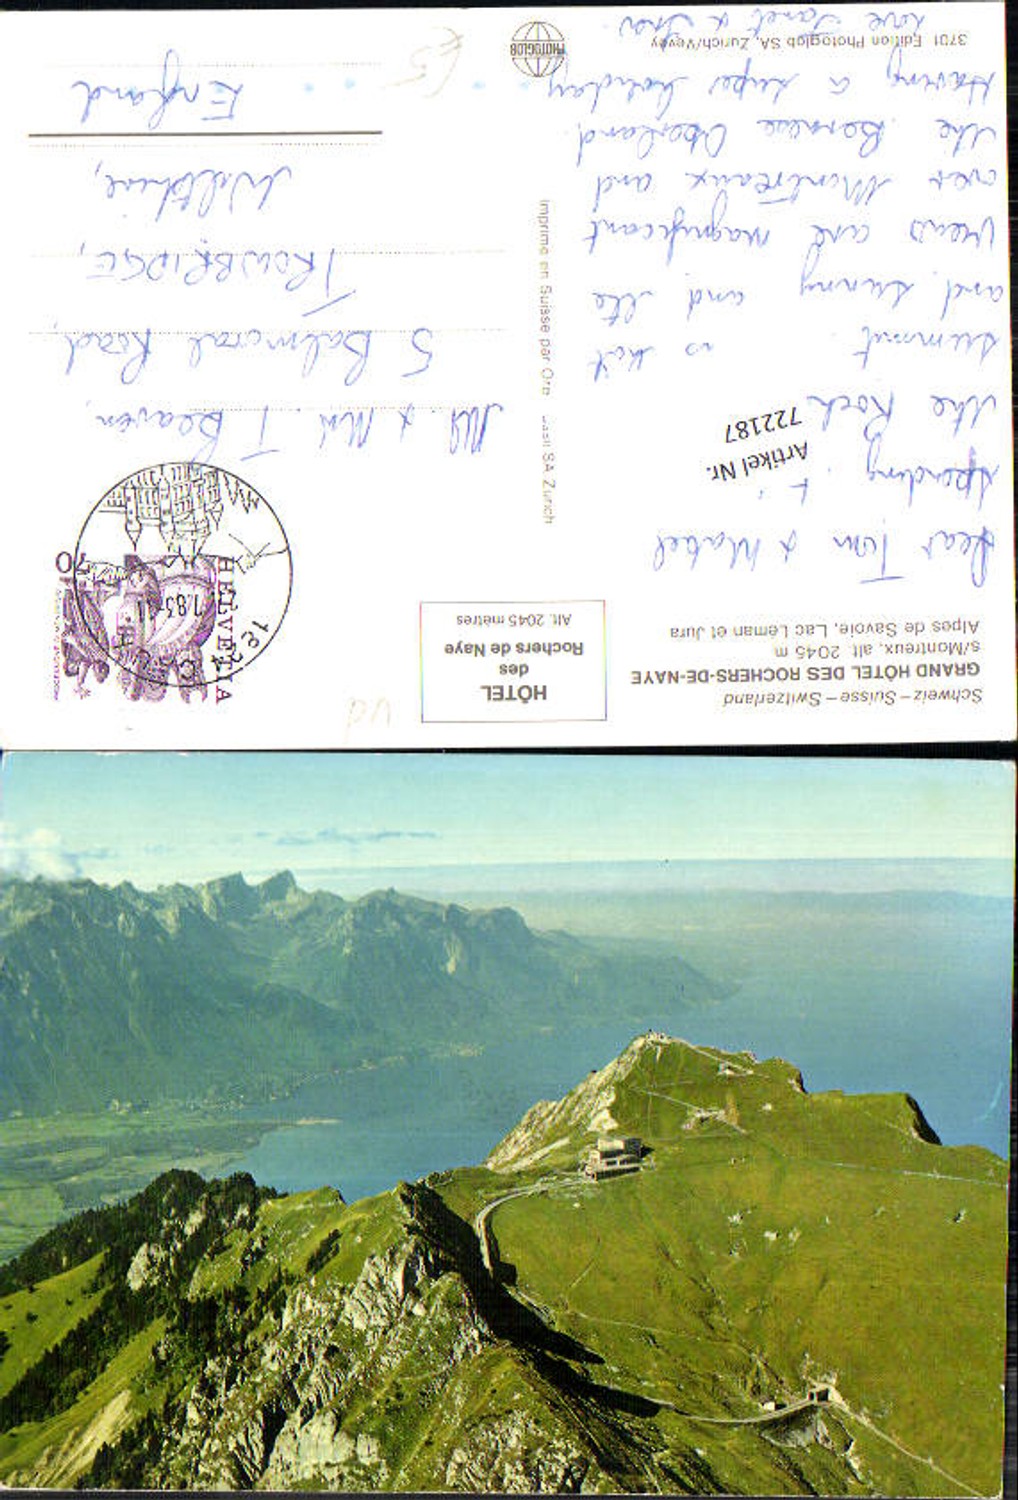 Schweiz – Suisse – Switzerland
GRAND HÔTEL DES ROCHERS-DE-NAYE
s/Montreux, alt. 2045 m
Alpes de Savoie, Lac Léman et Jura
HÔTEL
des
Rochers de Naye
Alt. 2045 mètres
Dear Tom & Mabel
Spending
The Rock
summit is hot
and sunny and the
views are magnificent
over Montreaux and
the Bernese Oberland.
Having a super holiday
love Janet &
Artikel Nr.
722187
HELVETIA
70
Mr. & Mrs. T Beaven,
5 Balmoral Road,
TROWBRIDGE,
Wiltshire,
England
Imprimé en Suisse par Oro
SA Zurich
3701 Edition Photoglob SA, Zurich/Vevey
PHOTOGLOB
£5
vd